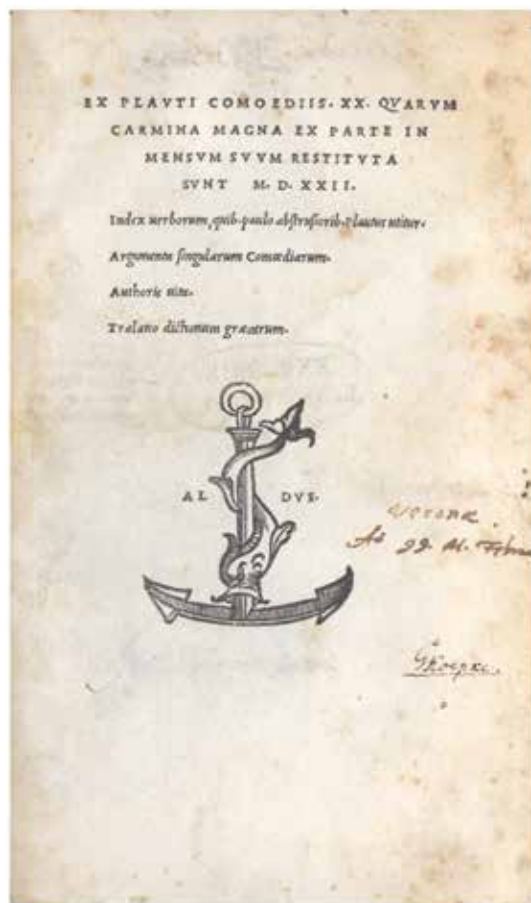 EX PLAVTI COMOEDIIS. XX. QVARVM
CARMINA MAGNA EX PARTE IN
MENSVM SVVM RESTITVTA
SVNT M. D. XXII.
Index uerborum, quib. paulo abstrusiorib. Plautus utitur.
Argumenta singularum Comœdiarum.
Authoris uita.
Tralatio dictionum græcarum.
AL DVS.
Verona